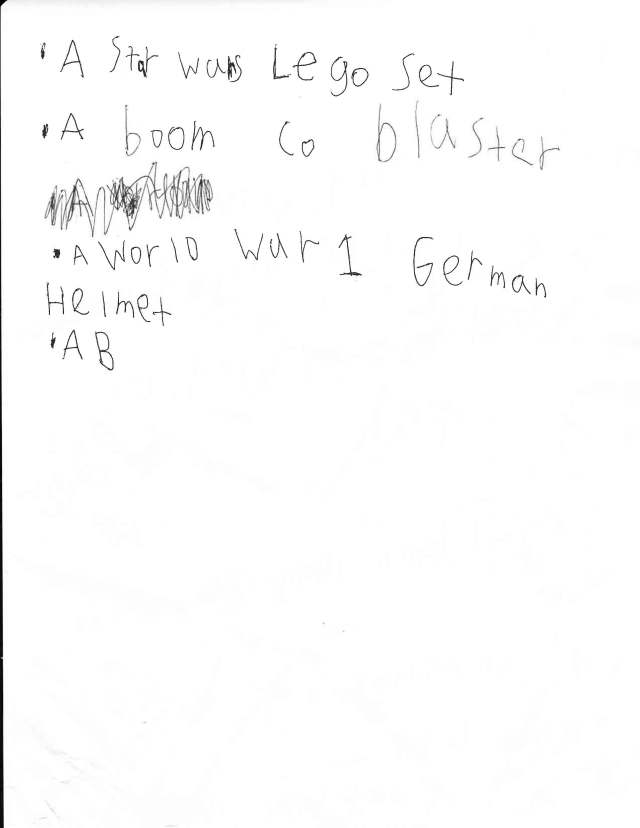 • A Star wars Lego Set
• A boom Co blaster
• A World War 1 German
Helmet
• A B